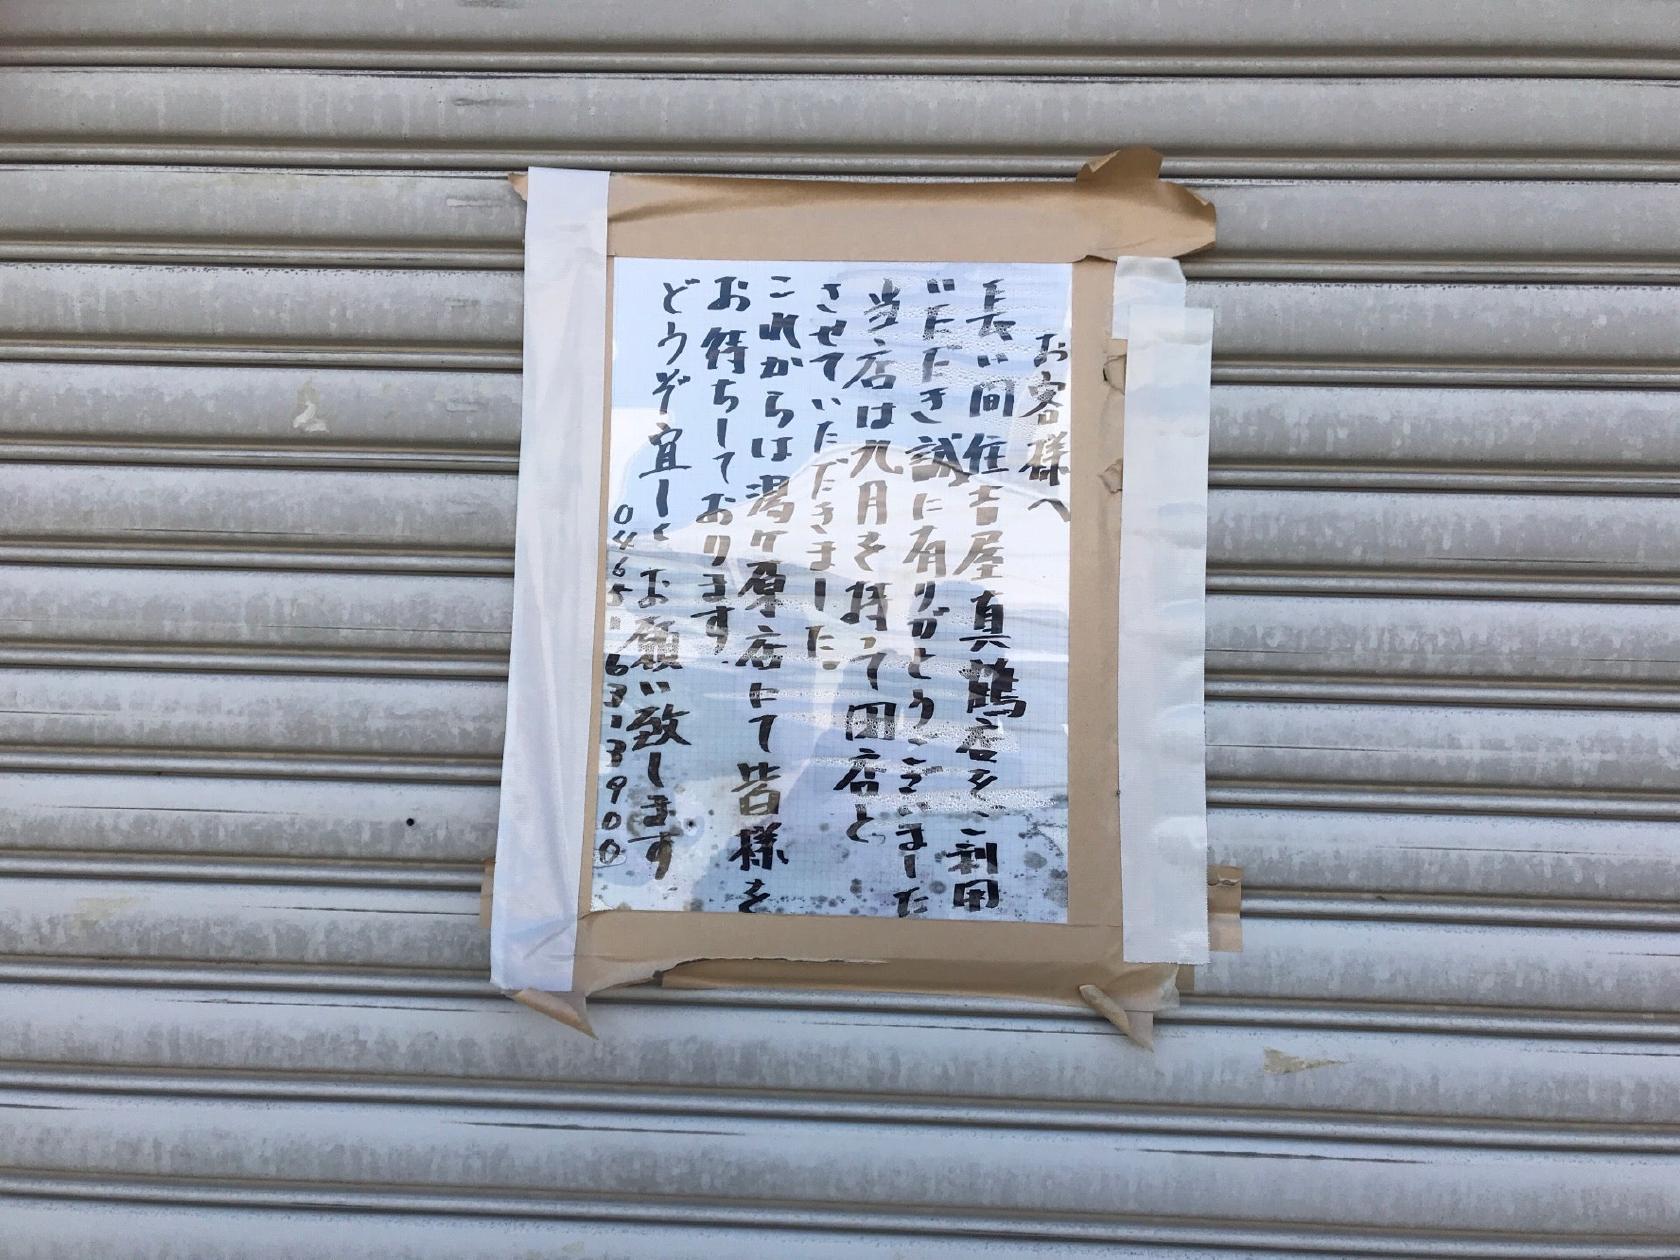 お客様へ
長い間住吉屋真鶴店をご利用
いただき誠に有りがとうございました
当店は九月を持って閉店と
させていただきました
これからは湯ケ原店にて皆様を
お待ちしております。
どうぞ宜しくお願い致します
0465-63-3900